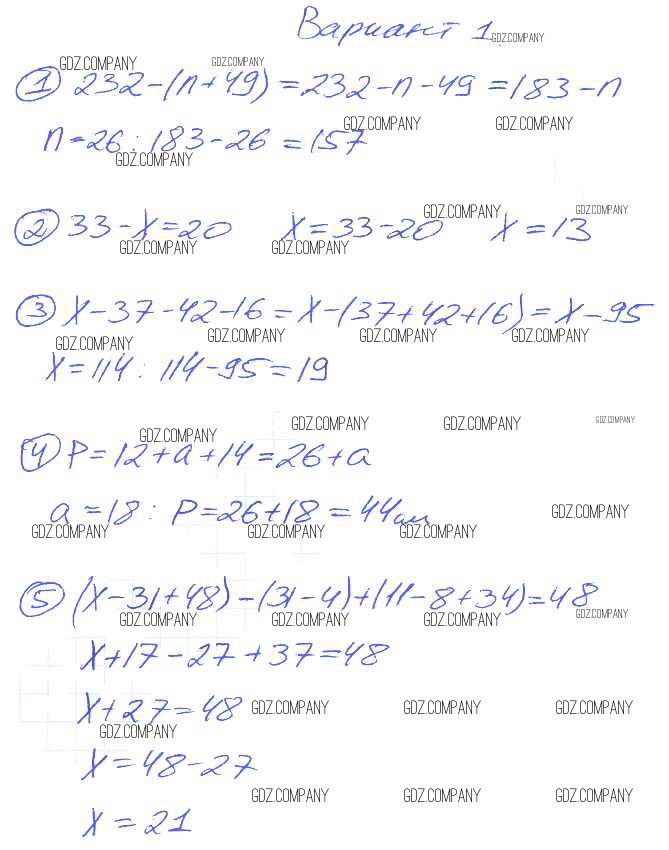 Вариант 1
GDZ.COMPANY
GDZ.COMPANY GDZ.COMPANY
① 232-(n+49)=232-n-49=183-n
GDZ.COMPANY GDZ.COMPANY
n=26: 183-26=157
GDZ.COMPANY
GDZ.COMPANY GDZ.COMPANY
② 33-x=20 x=33-20 x=13
GDZ.COMPANY GDZ.COMPANY
③ x-37-42-16=x-(37+42+16)=x-95
GDZ.COMPANY GDZ.COMPANY GDZ.COMPANY GDZ.COMPANY
x=114: 114-95=19
GDZ.COMPANY GDZ.COMPANY GDZ.COMPANY
GDZ.COMPANY
④ P=12+a+14=26+a
a=18: P=26+18=44см
GDZ.COMPANY
GDZ.COMPANY GDZ.COMPANY GDZ.COMPANY
⑤ (x-31+48)-(31-4)+(11-8+34)=48
GDZ.COMPANY GDZ.COMPANY GDZ.COMPANY GDZ.COMPANY
x+17-27+37=48
x+27=48
GDZ.COMPANY GDZ.COMPANY GDZ.COMPANY
GDZ.COMPANY
x=48-27
GDZ.COMPANY GDZ.COMPANY GDZ.COMPANY
x=21